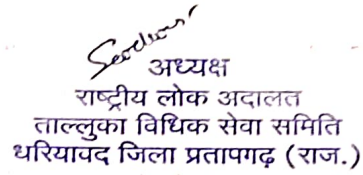 अध्यक्ष
राष्ट्रीय लोक अदालत
ताल्लुका विधिक सेवा समिति
धरियावद जिला प्रतापगढ़ (राज.)